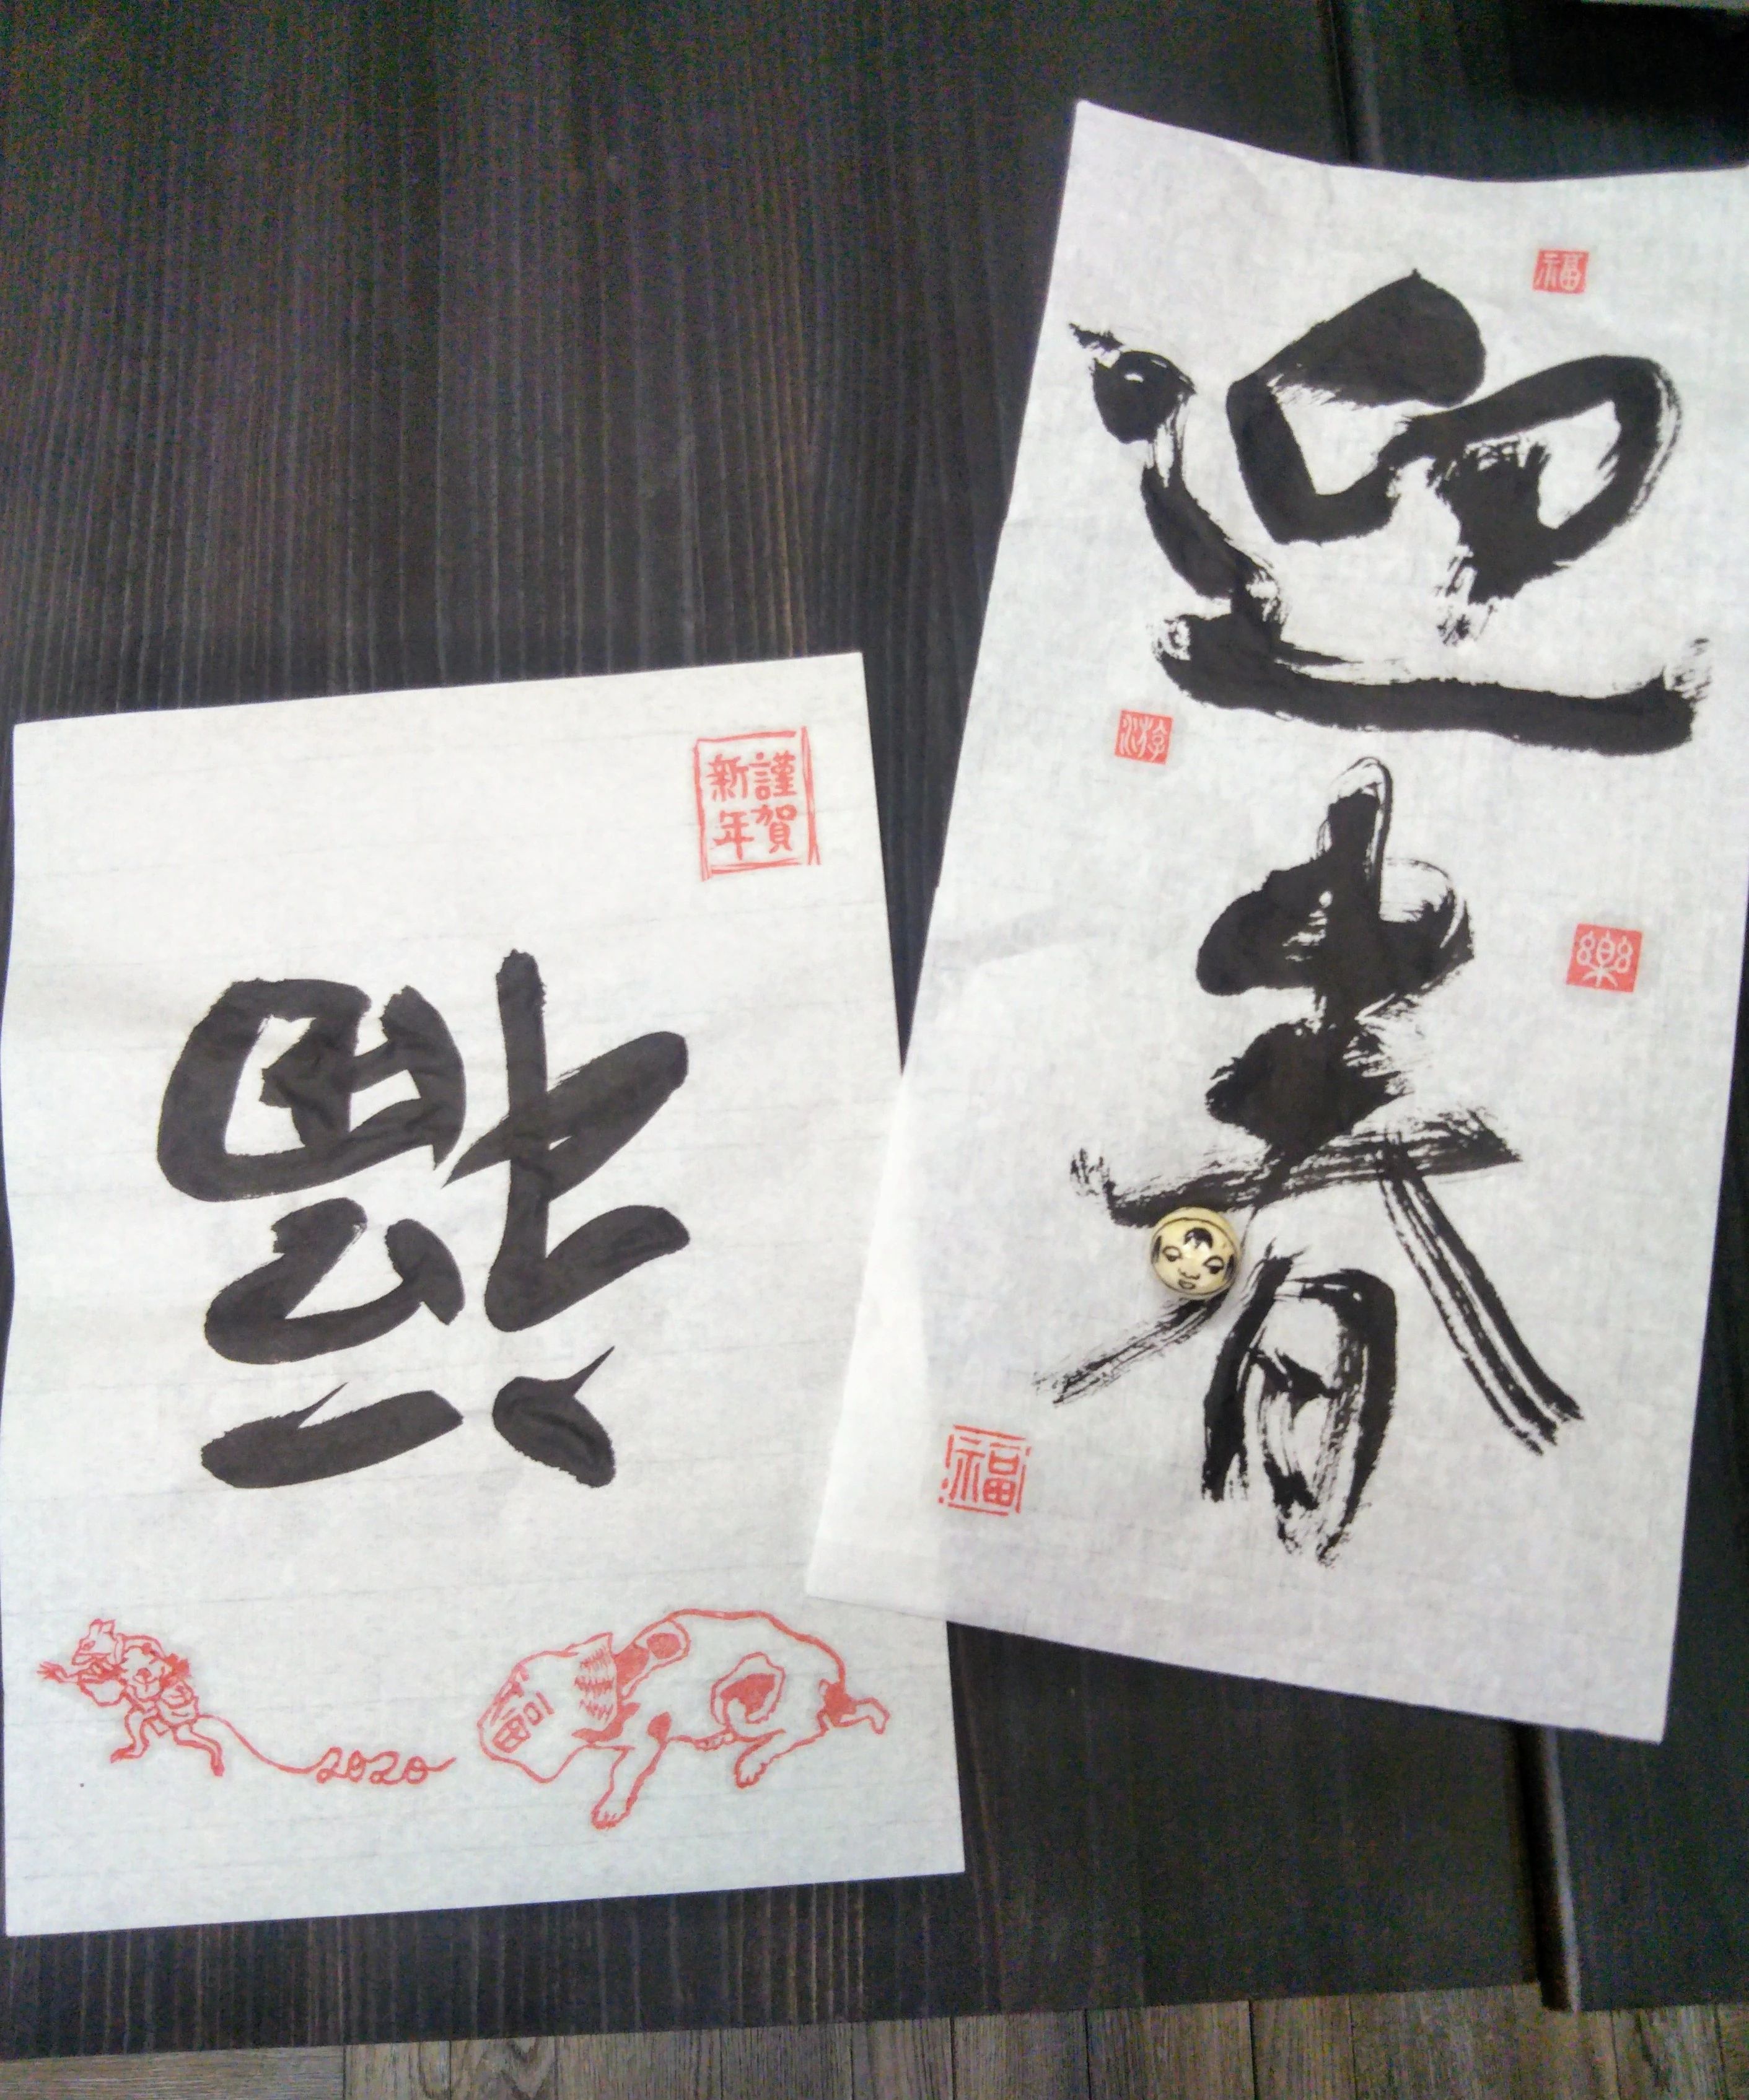 謹賀
新年
福
2020
福
迎春
福
游
樂
福